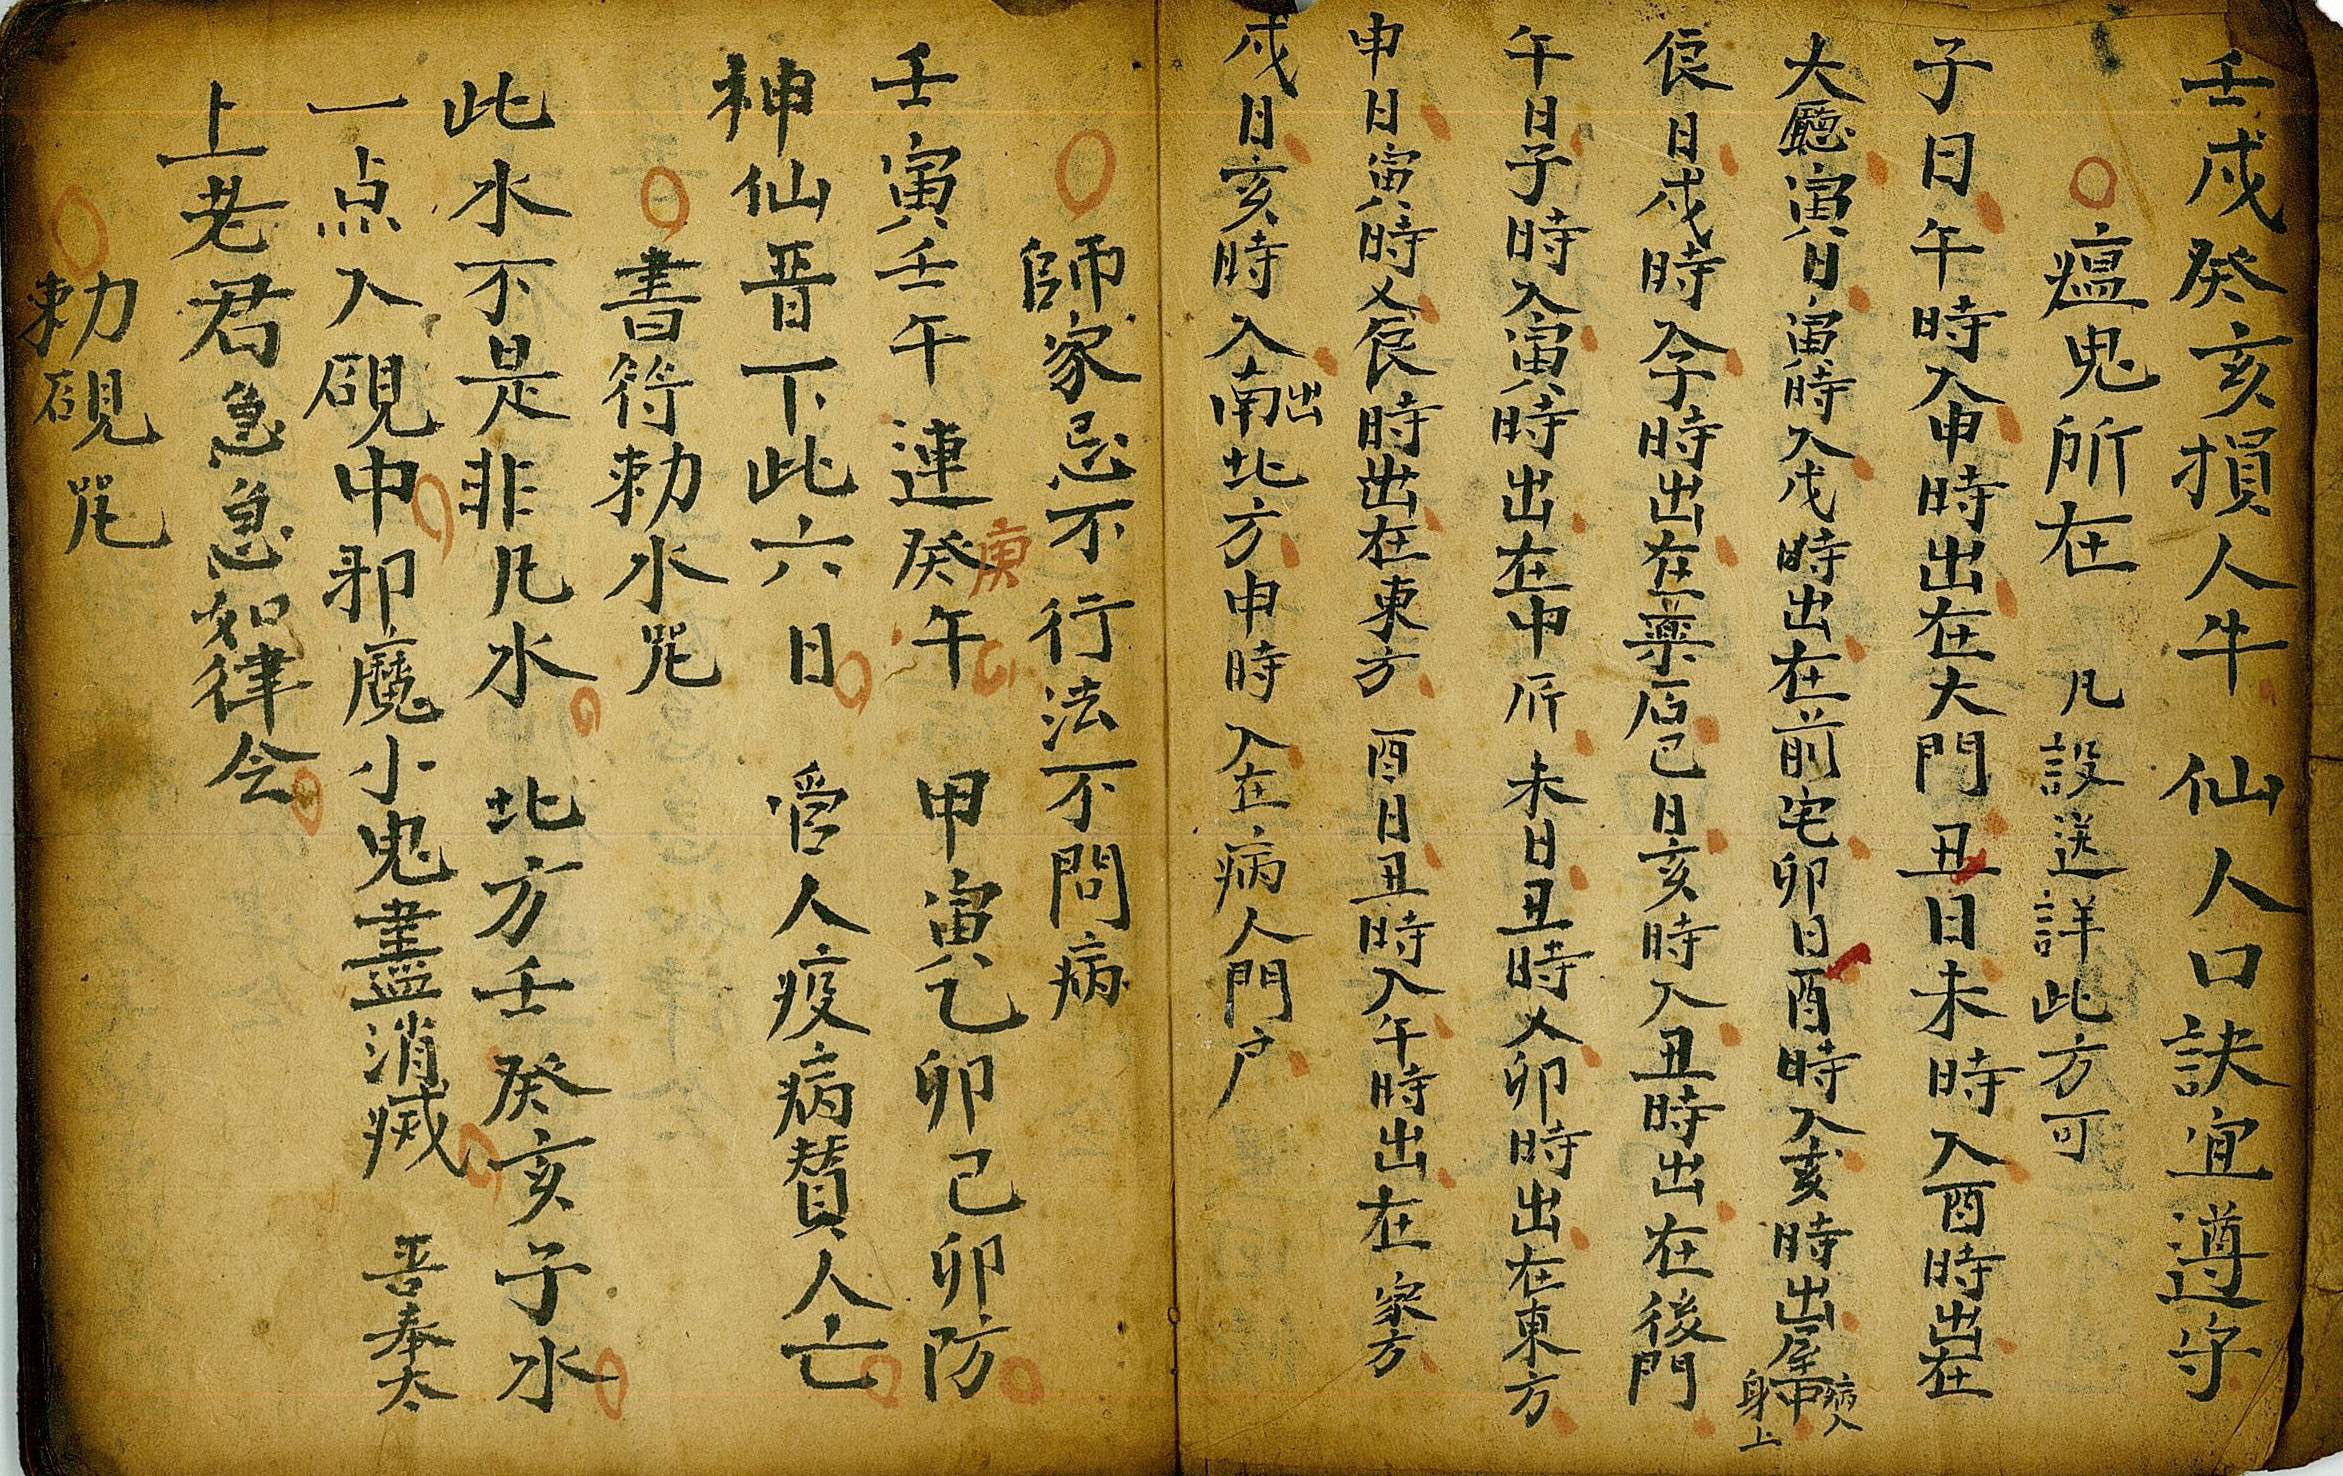 壬戌癸亥損人牛 仙人口訣宜遵守
瘟鬼所在 凡設送詳此方可
子日午時入申時出在大門丑日未時入酉時出在
大廳寅日寅時入戌時出在前宅卯日酉時入亥時出屋中病人身上
辰日戌時入子時出在藥店巳日亥時入丑時出在後門
午日子時入寅時出在中所未日丑時入卯時出在東方
申日寅時入辰時出在東方酉日丑時入午時出在家方
戌日亥時入南出北方申時入在病人門户
師家忌不行法不問病
壬寅壬午連癸午庚 甲寅乙卯己卯防
神仙晋下此六日 管人疫病賛人亡
書符勅水咒
此水不是非凡水 北方壬癸亥子水
一点入硯中邪魔小鬼盡消滅 吾奉太
上老君急急如律令
勅硯咒